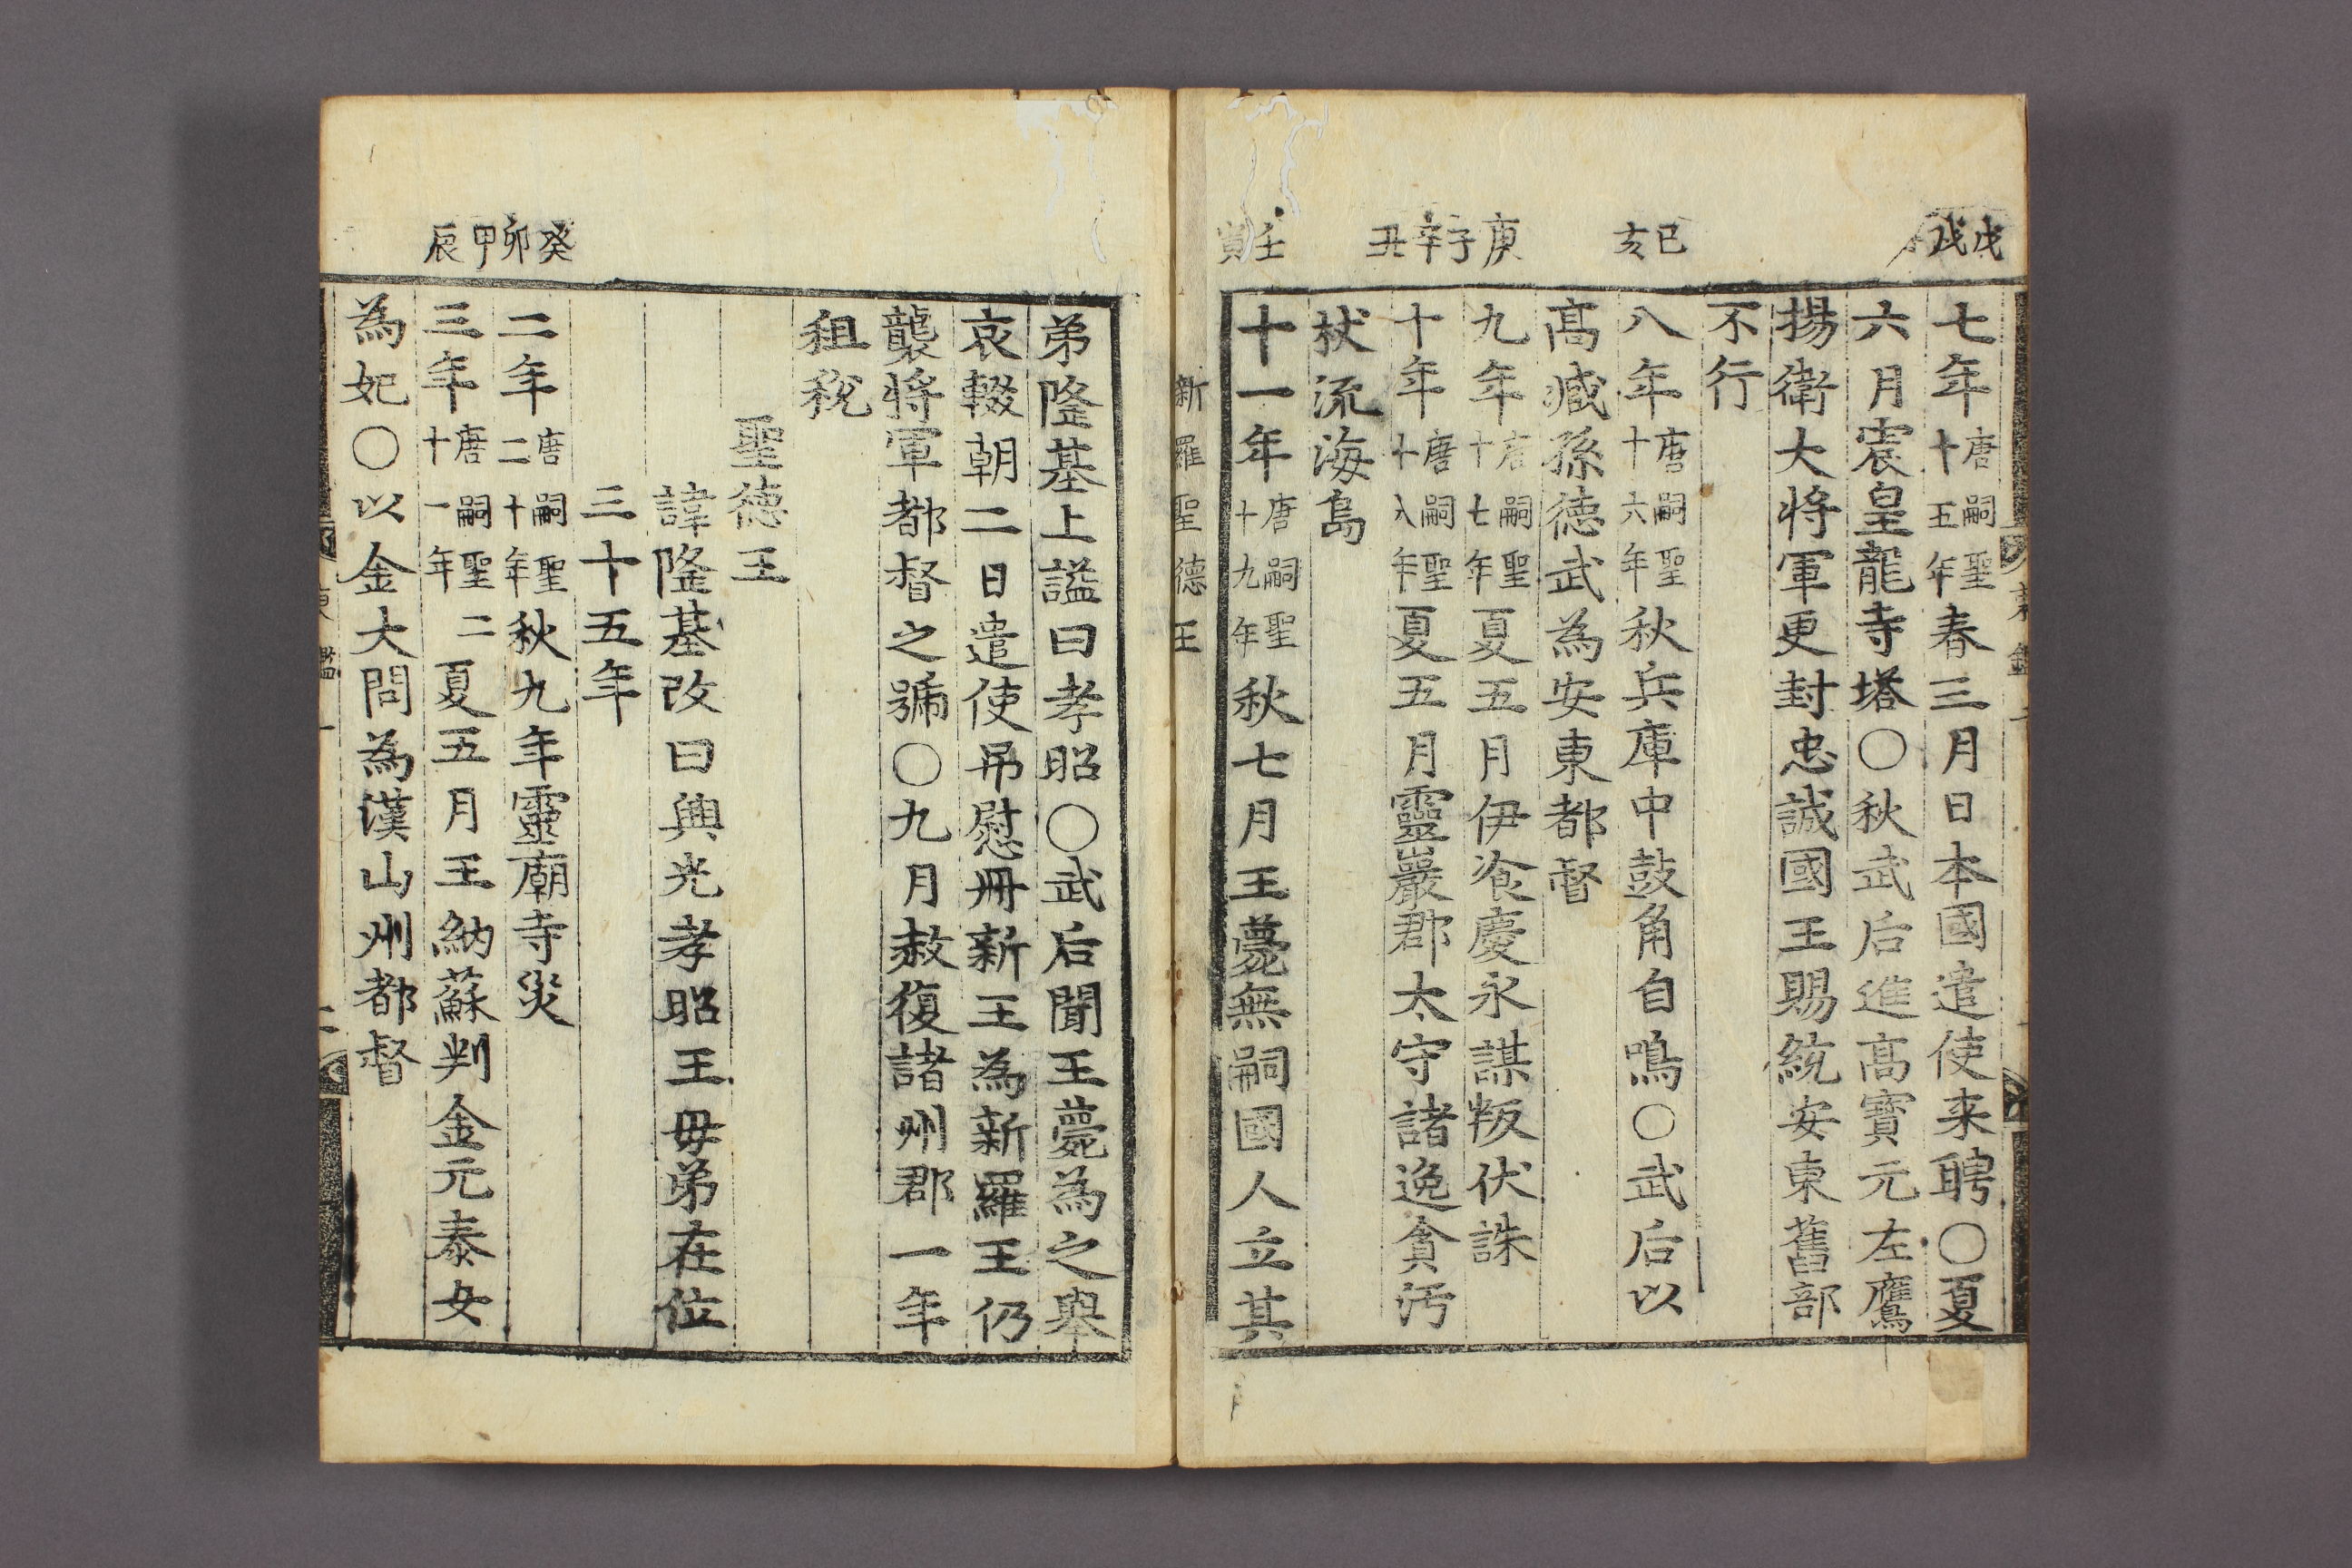 戊戌
己亥
庚子
辛丑
壬寅
七年唐嗣聖十五年春三月日本國遣使来聘○夏
六月震皇龍寺塔○秋武后進高寶元左鷹
揚衛大将軍更封忠誠國王賜統安東舊部
不行
八年唐嗣聖十六年秋兵庫中鼓角自鳴○武后以
高臧孫德武為安東都督
九年唐嗣聖十七年夏五月伊飡慶永謀叛伏誅
十年唐嗣聖十八年夏五月靈巖郡太守諸逸貪污
杖流海島
十一年唐嗣聖十九年秋七月王薨無嗣國人立其
新羅聖德王
癸卯
甲辰
弟隆基上謚曰孝昭○武后聞王薨為之舉
哀輟朝二日遣使吊慰冊新王為新羅王仍
襲将軍都督之號○九月赦復諸州郡一年
租稅
聖德王
諱隆基改曰興光孝昭王母弟在位
三十五年
二年唐嗣聖二十年秋九年靈廟寺災
三年唐嗣聖二十一年夏五月王納蘇判金元泰女
為妃○以金大問為漢山州都督